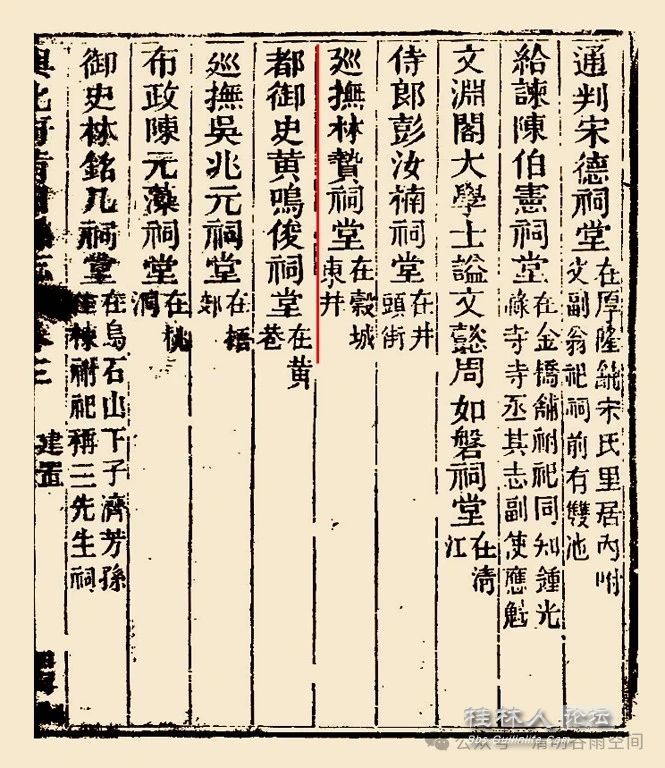 通判宋德祠堂 在厚隆鋪宋氏里居內附
父副翁祀祠前有雙池
給諫陳伯憲祠堂 在金橋舖祔祀同知鍾光
祿寺寺丞其志副使應魁
文淵閣大學士諡文懿周如磐祠堂 在清
江
侍郎彭汝楠祠堂 在井
頭街
廵撫林贄祠堂 在穀城
東井
都御史黄鳴俊祠堂 在黄
巷
廵撫吳兆元祠堂 在梧
郊
布政陳元藻祠堂 在桃
御史林銘几祠堂 在烏石山下子濟芳孫
棟祔祀稱三先生祠
興化府莆田縣志 卷三 建置
桂林人论坛
Bbs.Guilinlife.Com
公众号 清明谷雨空间